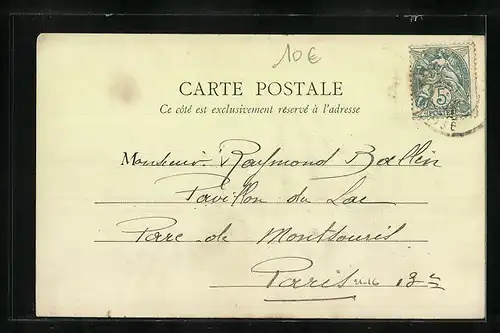 10€
CARTE POSTALE
Ce côté est exclusivement réservé à l'adresse
5
Monsieur Raymond Ballin
Pavillon du Lac
Parc de Montsouris
Paris 13e